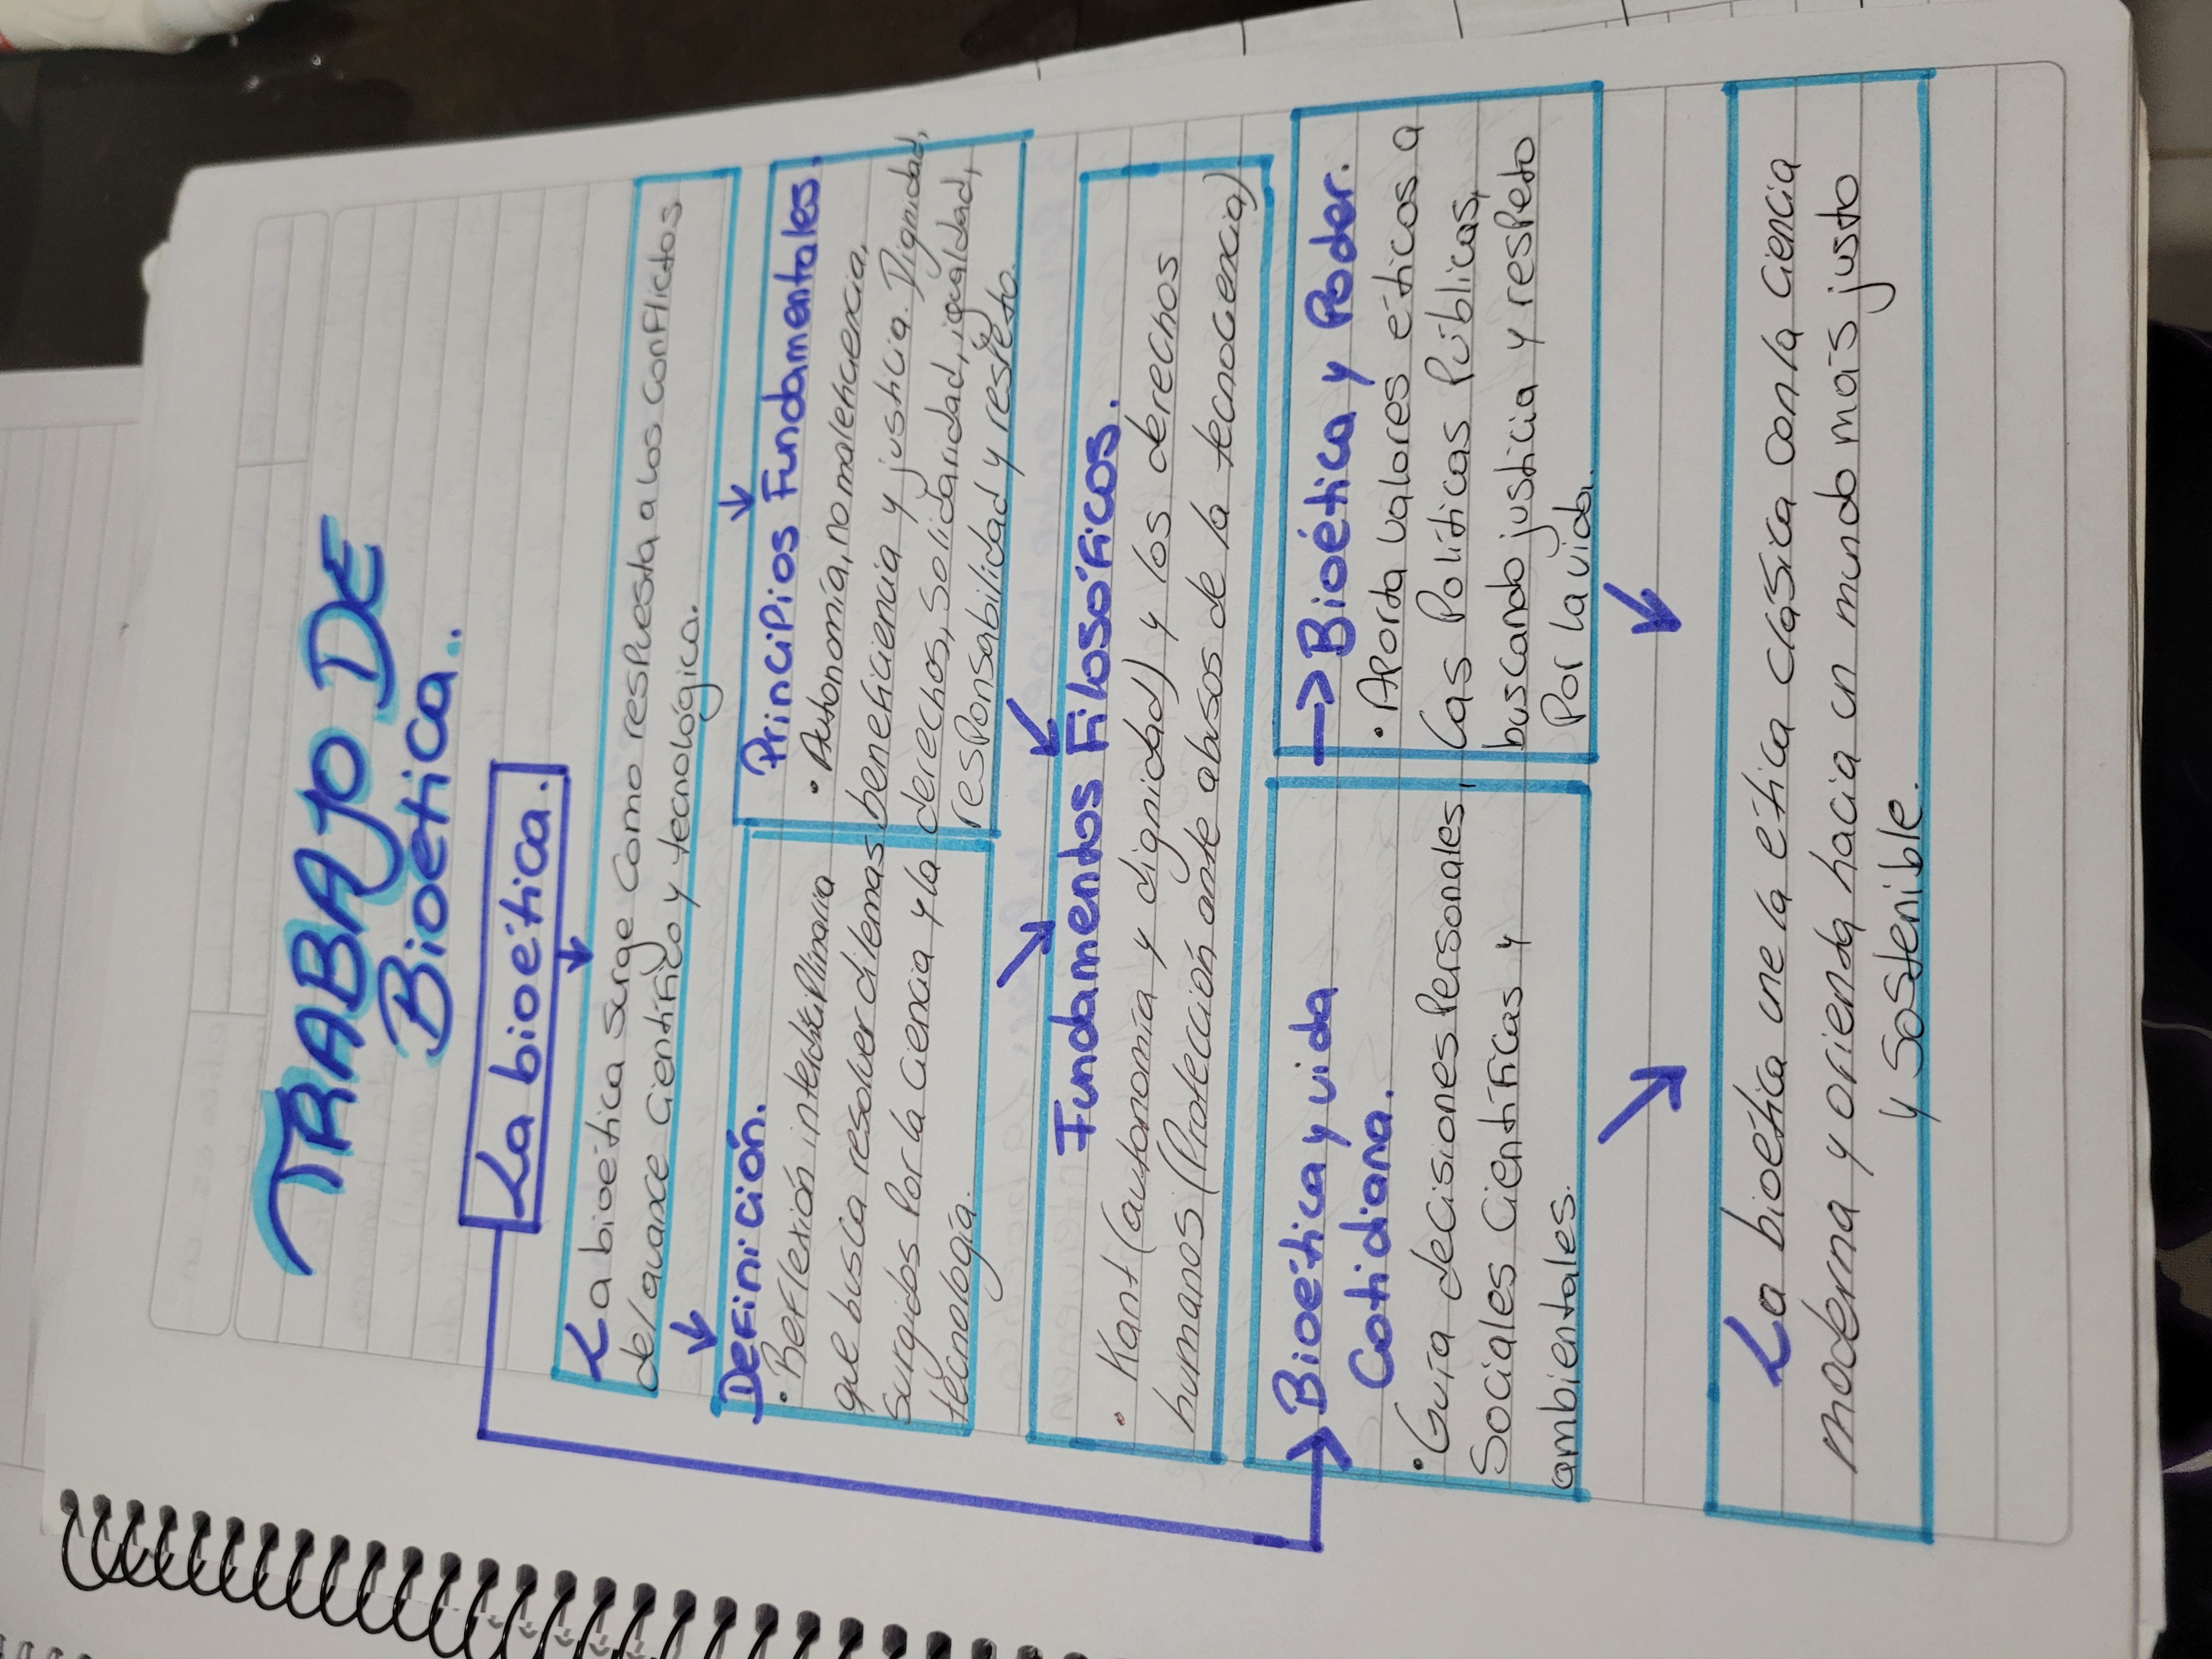 TRABAJO DE
Bioética.
La bioética.
La bioética surge como respuesta a los conflictos
del avance científico y tecnológico.
Definición.
• Reflexión interdisciplinaria
que busca resolver dilemas
surgidos por la ciencia y la
tecnología.
Principios Fundamentales.
• Autonomía, no maleficiencia,
beneficiencia y justicia. Dignidad,
derechos, solidaridad, igualdad,
responsabilidad y respeto.
Fundamentos Filosóficos.
• Kant (autonomía y dignidad) y los derechos
humanos (Protección ante abusos de la tecnociencia)
Bioética y vida
Cotidiana.
• Guía decisiones Personales,
Sociales científicas y
ambientales.
Bioética y Poder.
• Aporta valores éticos a
las Políticas Públicas,
buscando justicia y respeto
Por la vida.
La bioética une la ética clásica con la ciencia
moderna y orienta hacia un mundo más justo
y sostenible.